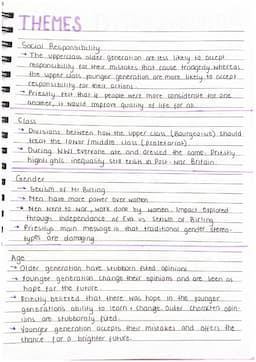 THEMES
Social Responsibility
→ The upperclass older generation are less likely to accept
responsibility for their mistakes that cause tragedy whereas
the upper class younger generation are more likely to accept
responsibility for their actions
→ Priestly felt that if people were more considerate for one
another, it would improve quality of life for all.
Class
→ Divisions between how the upper class (Bourgeoisie) should
treat the lower/middle class (proletariat).
→ During WWII everyone ate and dressed the same. Priestly
highlights inequality still exists in Post-War Britain.
Gender
→ Sexism of Mr Birling
→ Men have more power over women
→ Men went to war, work done by women. Impact explored
through independence of Eva vs sexism of Birling
→ Priestlys main message is that traditional gender stereo-
types are damaging
Age
→ Older generation have stubborn fixed opinions
→ Younger generation change their opinions and are seen as
hope for the future.
→ Priestly believed that there was hope in the younger
generations ability to learn + change. Older characters opin-
ions are stubbornly fixed.
→ Younger generation accepts their mistakes and offers the
chance for a brighter future.